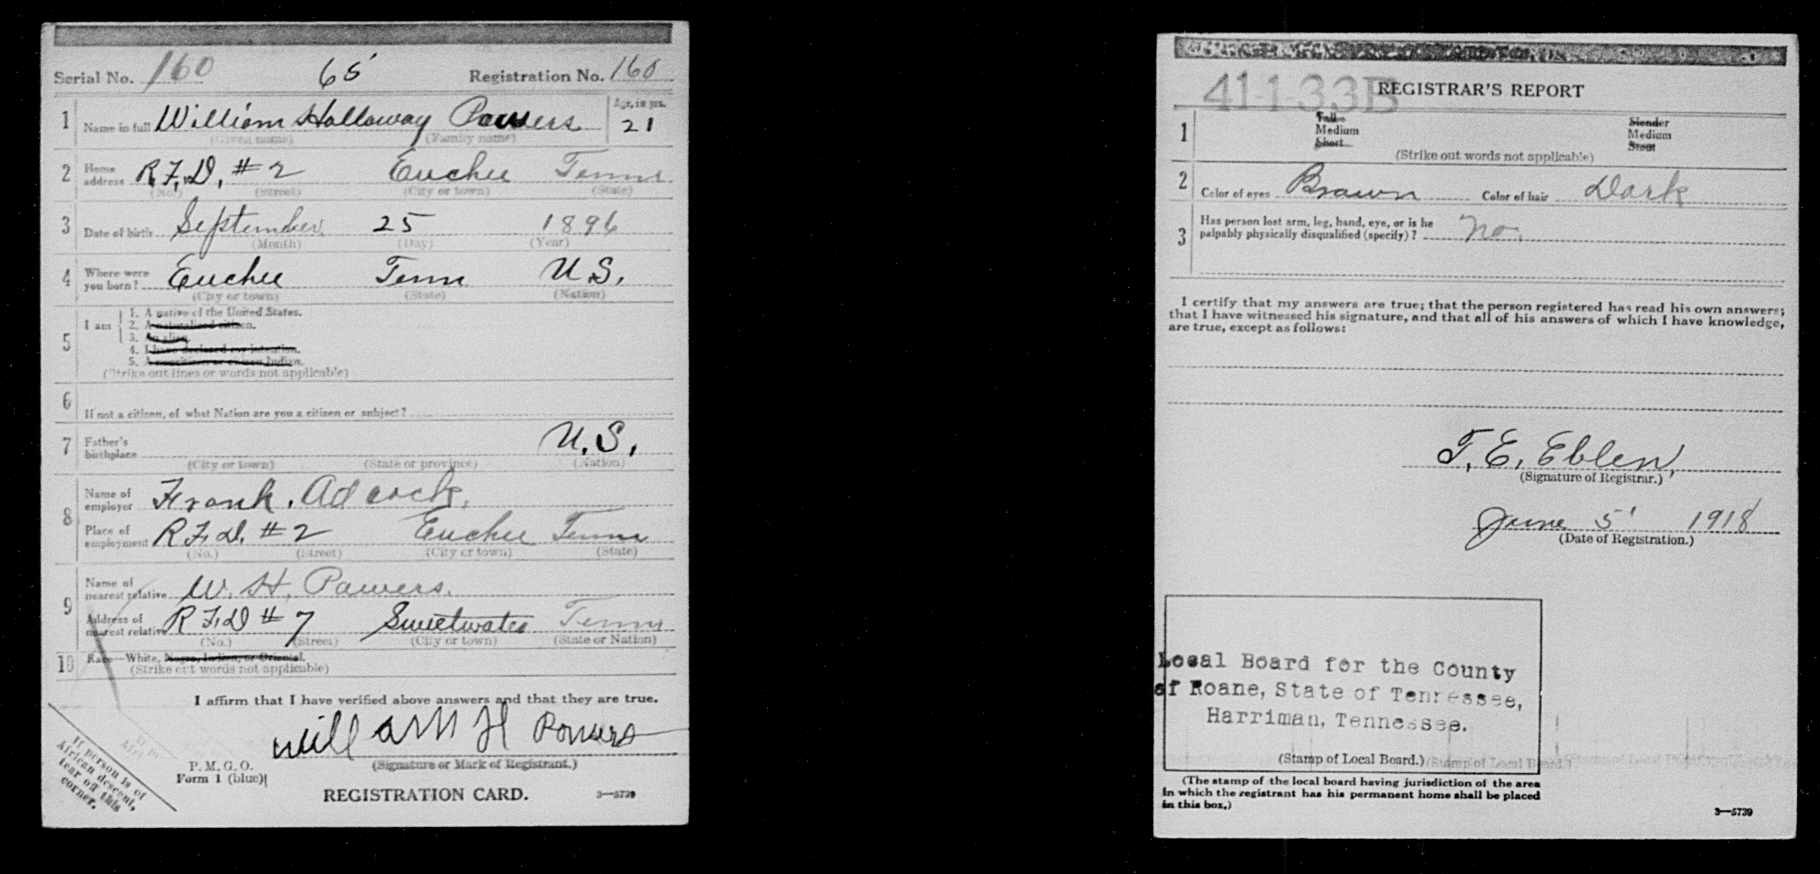 Serial No. 160 65 Registration No. 160
1 Name in full William Hollaway Powers Age, in yrs. 21
(Given name) (Family name)
2 Home address R.F.D. # 2 Euchee Tenn
(No.) (Street) (City or town) (State)
3 Date of birth September 25 1896
(Month) (Day) (Year)
4 Where were you born? Euchee Tenn U.S.
(City or town) (State) (Nation)
5 I am
1. A native of the United States.
2. A naturalized citizen.
3. An alien.
4. I have declared my intention.
5. A noncitizen or citizen Indian.
(Strike out lines or words not applicable)
6 If not a citizen, of what Nation are you a citizen or subject?
7 Father's birthplace U.S.
(City or town) (State or province) (Nation)
8 Name of employer Frank. Adcock.
Place of employment R.F.D. # 2 Euchee Tenn
(No.) (Street) (City or town) (State)
9 Name of nearest relative W. H. Powers.
Address of nearest relative R F.D # 7 Sweetwater Tenn
(No.) (Street) (City or town) (State or Nation)
10 Race—White, Negro, Indian, or Oriental.
(Strike out words not applicable)
I affirm that I have verified above answers and that they are true.
William H Powers
(Signature or Mark of Registrant.)
P. M. G. O.
Form 1 (blue)
REGISTRATION CARD.
3—5739
If person is of
African descent,
tear off this
corner.
41-1-33B REGISTRAR'S REPORT
1 Tall Slender
Medium Medium
Short Stout
(Strike out words not applicable)
2 Color of eyes Brown Color of hair Dark
3 Has person lost arm, leg, hand, eye, or is he
palpably physically disqualified (specify)? No.
I certify that my answers are true; that the person registered has read his own answers;
that I have witnessed his signature, and that all of his answers of which I have knowledge,
are true, except as follows:
T. E. Eblen,
(Signature of Registrar.)
June 5 1918
(Date of Registration.)
Local Board for the County
of Roane, State of Tennessee,
Harriman, Tennessee.
(Stamp of Local Board.)
(The stamp of the local board having jurisdiction of the area
in which the registrant has his permanent home shall be placed
in this box.)
3—5739